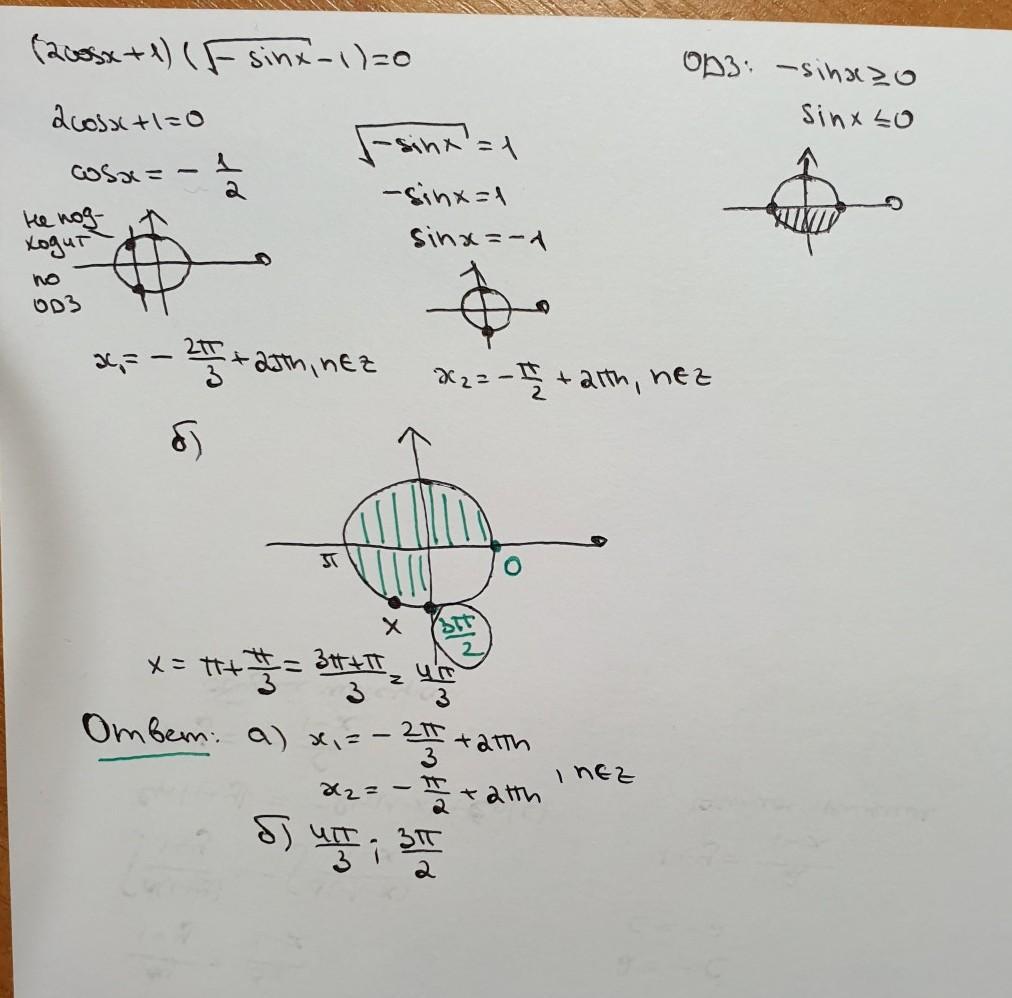 (2cosx+1)(√-sinx-1)=0
ОДЗ: -sinx≥0
sinx≤0
2cosx+1=0
cosx=-1/2
не под-
ходит
по
ОДЗ
x₁=-2π/3+2πn, n∈Z
√-sinx=1
-sinx=1
sinx=-1
x₂=-π/2+2πn, n∈Z
б)
π
0
x
3π/2
x=π+π/3=3π+π/3=4π/3
Ответ: а) x₁=-2π/3+2πn
x₂=-π/2+2πn, n∈Z
б) 4π/3; 3π/2